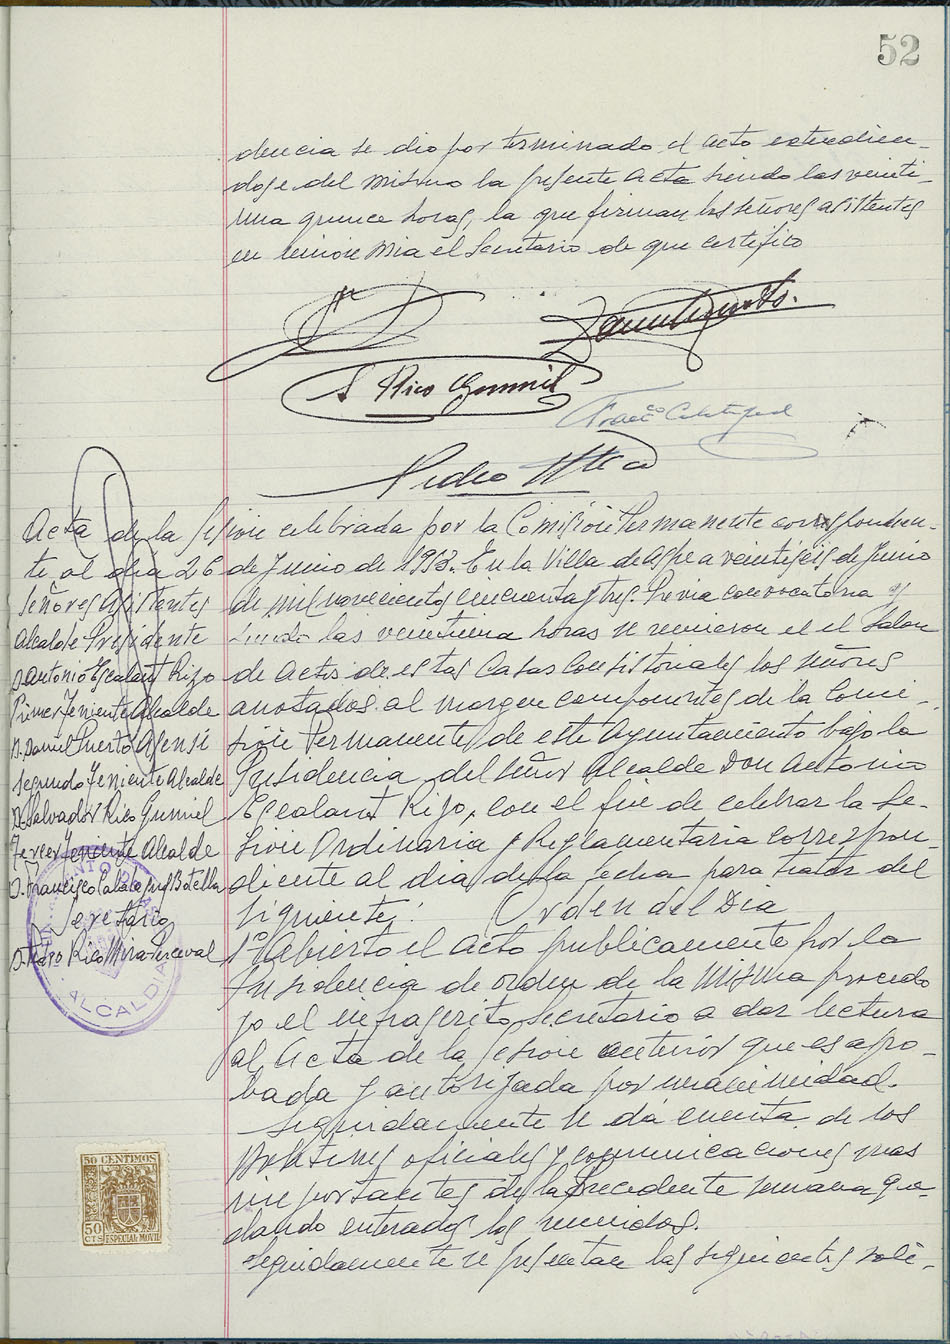 52
dencia se dio por terminado el acto extendien-
dose del mismo la presente Acta siendo las veinti-
una quince horas, la que firman los señores asistentes
en unión mia el Secretario de que certifico
S Rico Gumiel
Franco Calatayud
Pedro
Acta de la Sesion celebrada por la Comisión Permanente correspondien-
te al día 26 de Junio de 1953. En la Villa de Aspe a veintiseis de Junio
Señores Asistentes
Alcalde Presidente
D. Antonio Escalant Rizo
Primer Teniente Alcalde
D. Daniel Puerto Asensi
Segundo Teniente Alcalde
D. Salvador Rico Gumiel
Tercer Teniente Alcalde
D. Francisco Calatayud Botella
Secretario
D. Rico Mira-Perceval
de mil novecientos cincuenta y tres. Previa convocatoria y
siendo las veintiuna horas se reunieron el el Salon
de actos de estas Casas Consistoriales los señores
anotados al margen componentes de la Comi-
sion Permanente de este Ayuntamiento bajo la
Presidencia del señor Alcalde Don Antonio
Escalant Rizo, con el fin de celebrar la Se-
sion Ordinaria y Reglamentaria correspon-
diente al dia de la fecha para tratar del
siguiente: Orden del Dia
1º Abierto el acto publicamente por la
Presidencia de orden de la misma procedo
yo el infrascrito Secretario a dar lectura
al Acta de la sesion anterior que es apro-
bada y autorizada por unanimidad.
Seguidamente se dá cuenta de los
Boletines oficiales y comunicaciones mas
importantes de la precedente semana que-
dando enterados los reunidos.
Seguidamente se presentan las siguientes soli-
ALCALDIA
50 CENTIMOS
50
CTS ESPECIAL MOVIL